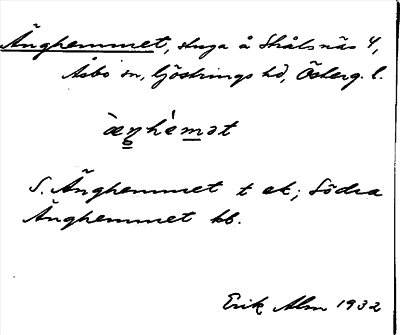 Änghemmet, stuga å Skålsnäs 4,
Åsbo sn, Göstrings hd, Österg. l.
ὰŋhὲmət
S. Änghemmet t ek; Södra
Änghemmet kb.
Erik Alm 1932